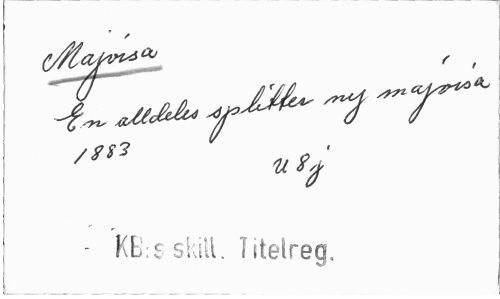 Majvisa
En alldeles splitter ny majvisa
1883
U 8 j
KB:s skill. Titelreg.